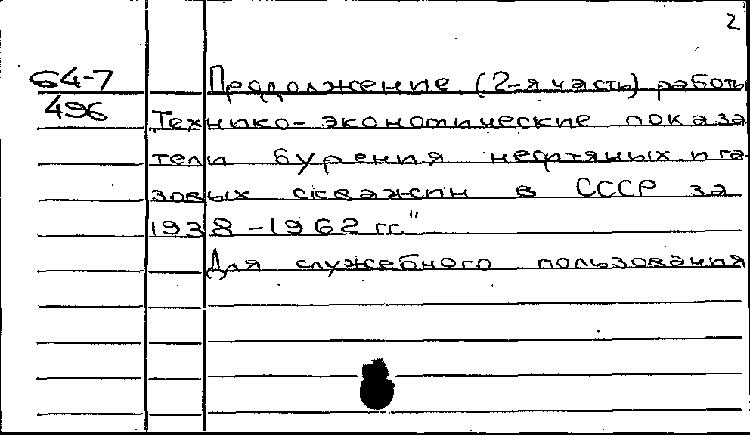 2
64-7
496
Продолжение (2-я часть) работы
Технико-экономические показа
тели бурения нефтяных и га
зовых скважин в СССР за
1938-1962 гг."
Для служебного пользования